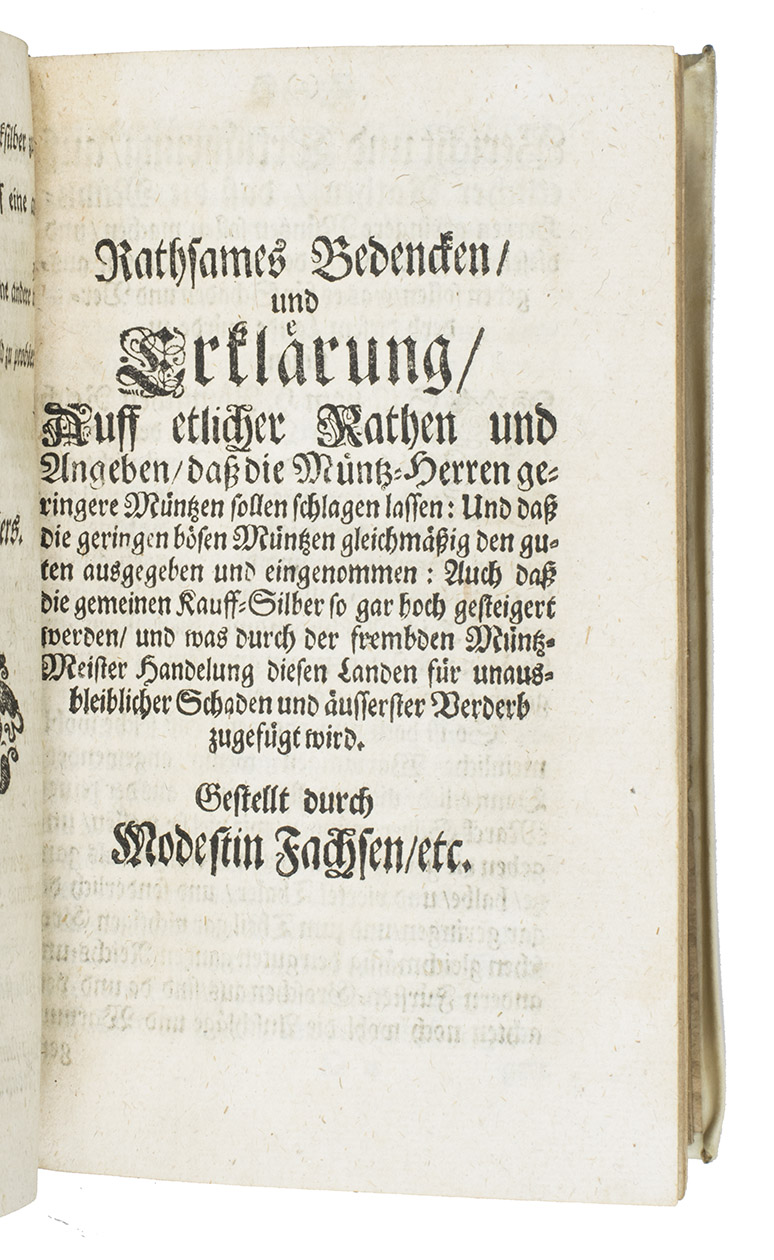 Rathsames Bedencken/
und
Erklärung/
Auff etlicher Rathen und
Angeben/ daß die Müntz-Herren ge-
ringere Müntzen sollen schlagen lassen: Und daß
die geringen bösen Müntzen gleichmäßig den gu-
ten ausgegeben und eingenommen: Auch daß
die gemeinen Kauff-Silber so gar hoch gesteigert
werden/ und was durch der frembden Müntz-
Meister Handelung diesen Landen für unaus-
bleiblicher Schaden und äusserster Verderb
zugefügt wird.
Gestellt durch
Modestin Fachsen/etc.